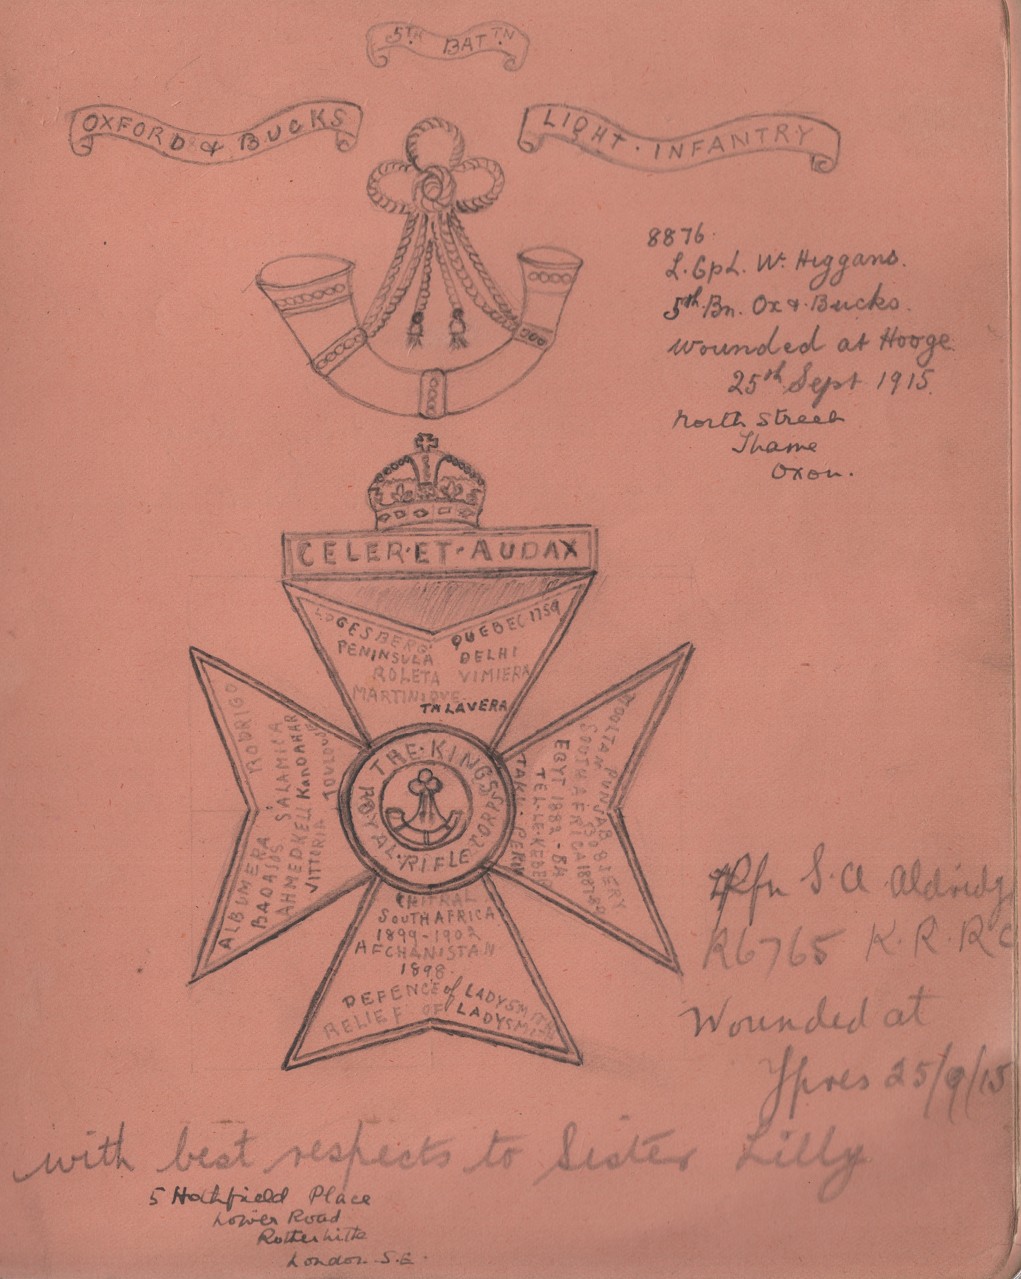 5TH BATTN
OXFORD & BUCKS
LIGHT · INFANTRY
8876.
L. Cpl. W. Higgans.
5th Bn. Ox & Bucks.
Wounded at Hooge
25th Sept 1915.
North Street
Thame
Oxon.
CELER·ET·AUDAX
QUEBEC 1759
PENINSULA DELHI
ROLETA VIMIERA
MARTINIQUE
TALAVERA
RODRIGO
ALBUMERA
BADAJOS. SALAMICA
AHMEDKELL KANDAHAR
VITTORIA TOULOUSE
THE·KINGS
ROYAL·RIFLE·CORPS
MOOLTAN PUNJAB
SOUTH AFRICA
EGYT 1882-84
TEL-LE-KEBER
TAKU PEKIN
CHITRAL
SOUTH AFRICA
1899-1902
AFGHANISTAN
1898.
DEFENCE of LADYSMITH
RELIEF OF LADYSMITH
Rfn S. A. Aldridg
R6765 K. R. R. C
Wounded at
Ypres 25/9/15
with best respects to Sister Lilly
5 Hothfield Place
Lower Road
Rotherhithe
London. S.E.